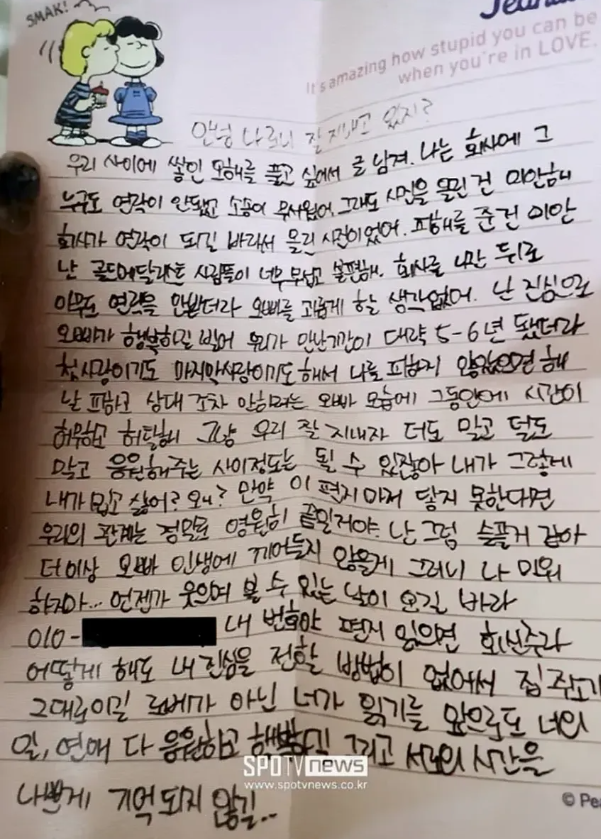 SMAK!
It's amazing how stupid you can be
when you're in LOVE.
안녕 나 잘 지내고 있지?
우리 사이에 쌓인 오해를 풀고 싶어서 글 남겨. 나는 회사에 그
누구도 연락이 안됐고 소송이 무서웠어. 그래도 사진을 올린 건 미안해
회사가 연락이 되길 바라서 올린 사진이었어. 피해를 준건 미안
난 골드메달리스트 사람들이 너무 무섭고 불편해. 회사를 나간 뒤로
아무도 연락을 안받더라 오빠를 괴롭게 할 생각없어. 난 진심으로
오빠가 행복하길 빌어 우리가 만난기간이 대략 5-6년 됐더라
첫사랑이기도 마지막사랑이기도 해서 나를 피하지 않았으면 해
날 피하고 상대 조차 안하려는 오빠 모습에 그동안에 시간이
허무하고 허탈해 그냥 우리 잘 지내자 더도 말고 덜도
말고 응원해주는 사이정도는 될 수 있잖아 내가 그렇게
내가 밉고 싫어? 왜? 만약 이 편지마저 닿지 못한다면
우리의 관계는 정말로 영원히 끝일거야. 난 그럼 슬플거 같아
더이상 오빠 인생에 끼어들지 않을게 그러니 나 미워
하지마... 언젠가 웃으며 볼 수 있는 날이 오길 바라
010- 내 번호야 편지 읽으면 회신주라
어떻게 해도 내 진심을 전할 방법이 없어서 집 주소가
그대로이길 로베가 아닌 너가 읽기를 앞으로도 너의
일, 연애 다 응원하고 행복하길 그리고 서로의 시간을
나쁘게 기억되지 않길..
SPOTV news
www.spotvnews.co.kr